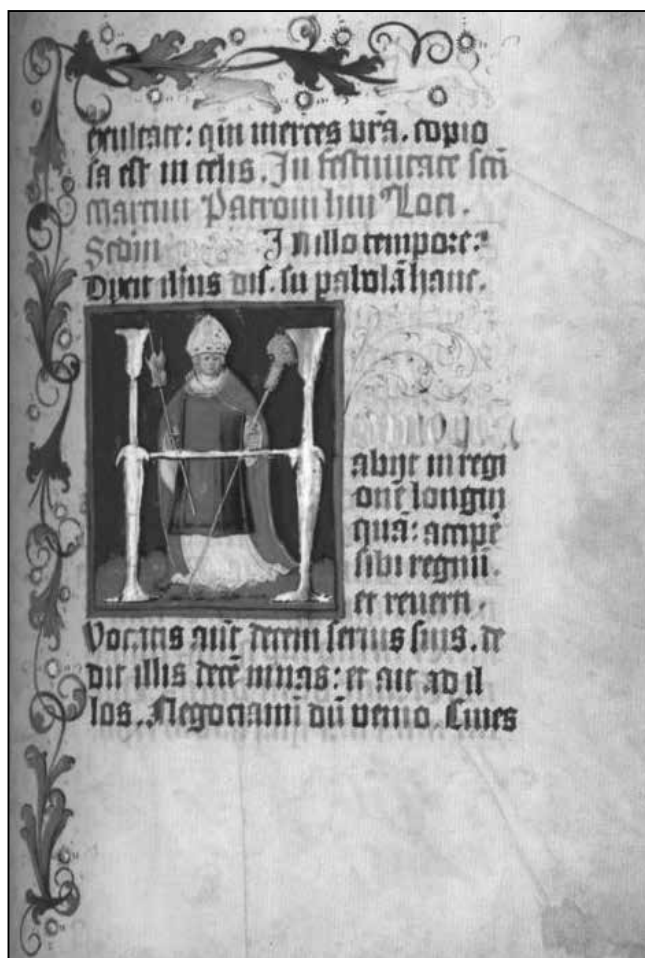 exultate: qm̄ merces vr̄a. copio
sa est in celis. In festiuitate sc̄ti
Martini Patroni huiꝰ Loci.
Secūn In illo tempore:
Dixit ih̄us dis. su pabolā hanc.
H
abijt in regi
onē longin
quā: accipē
sibi regnū.
et reuerti.
Vocatis aūt decem seruis suis. de
dit illis decē mnas: et ait ad il
los. Negociamī dū venio. Ciues